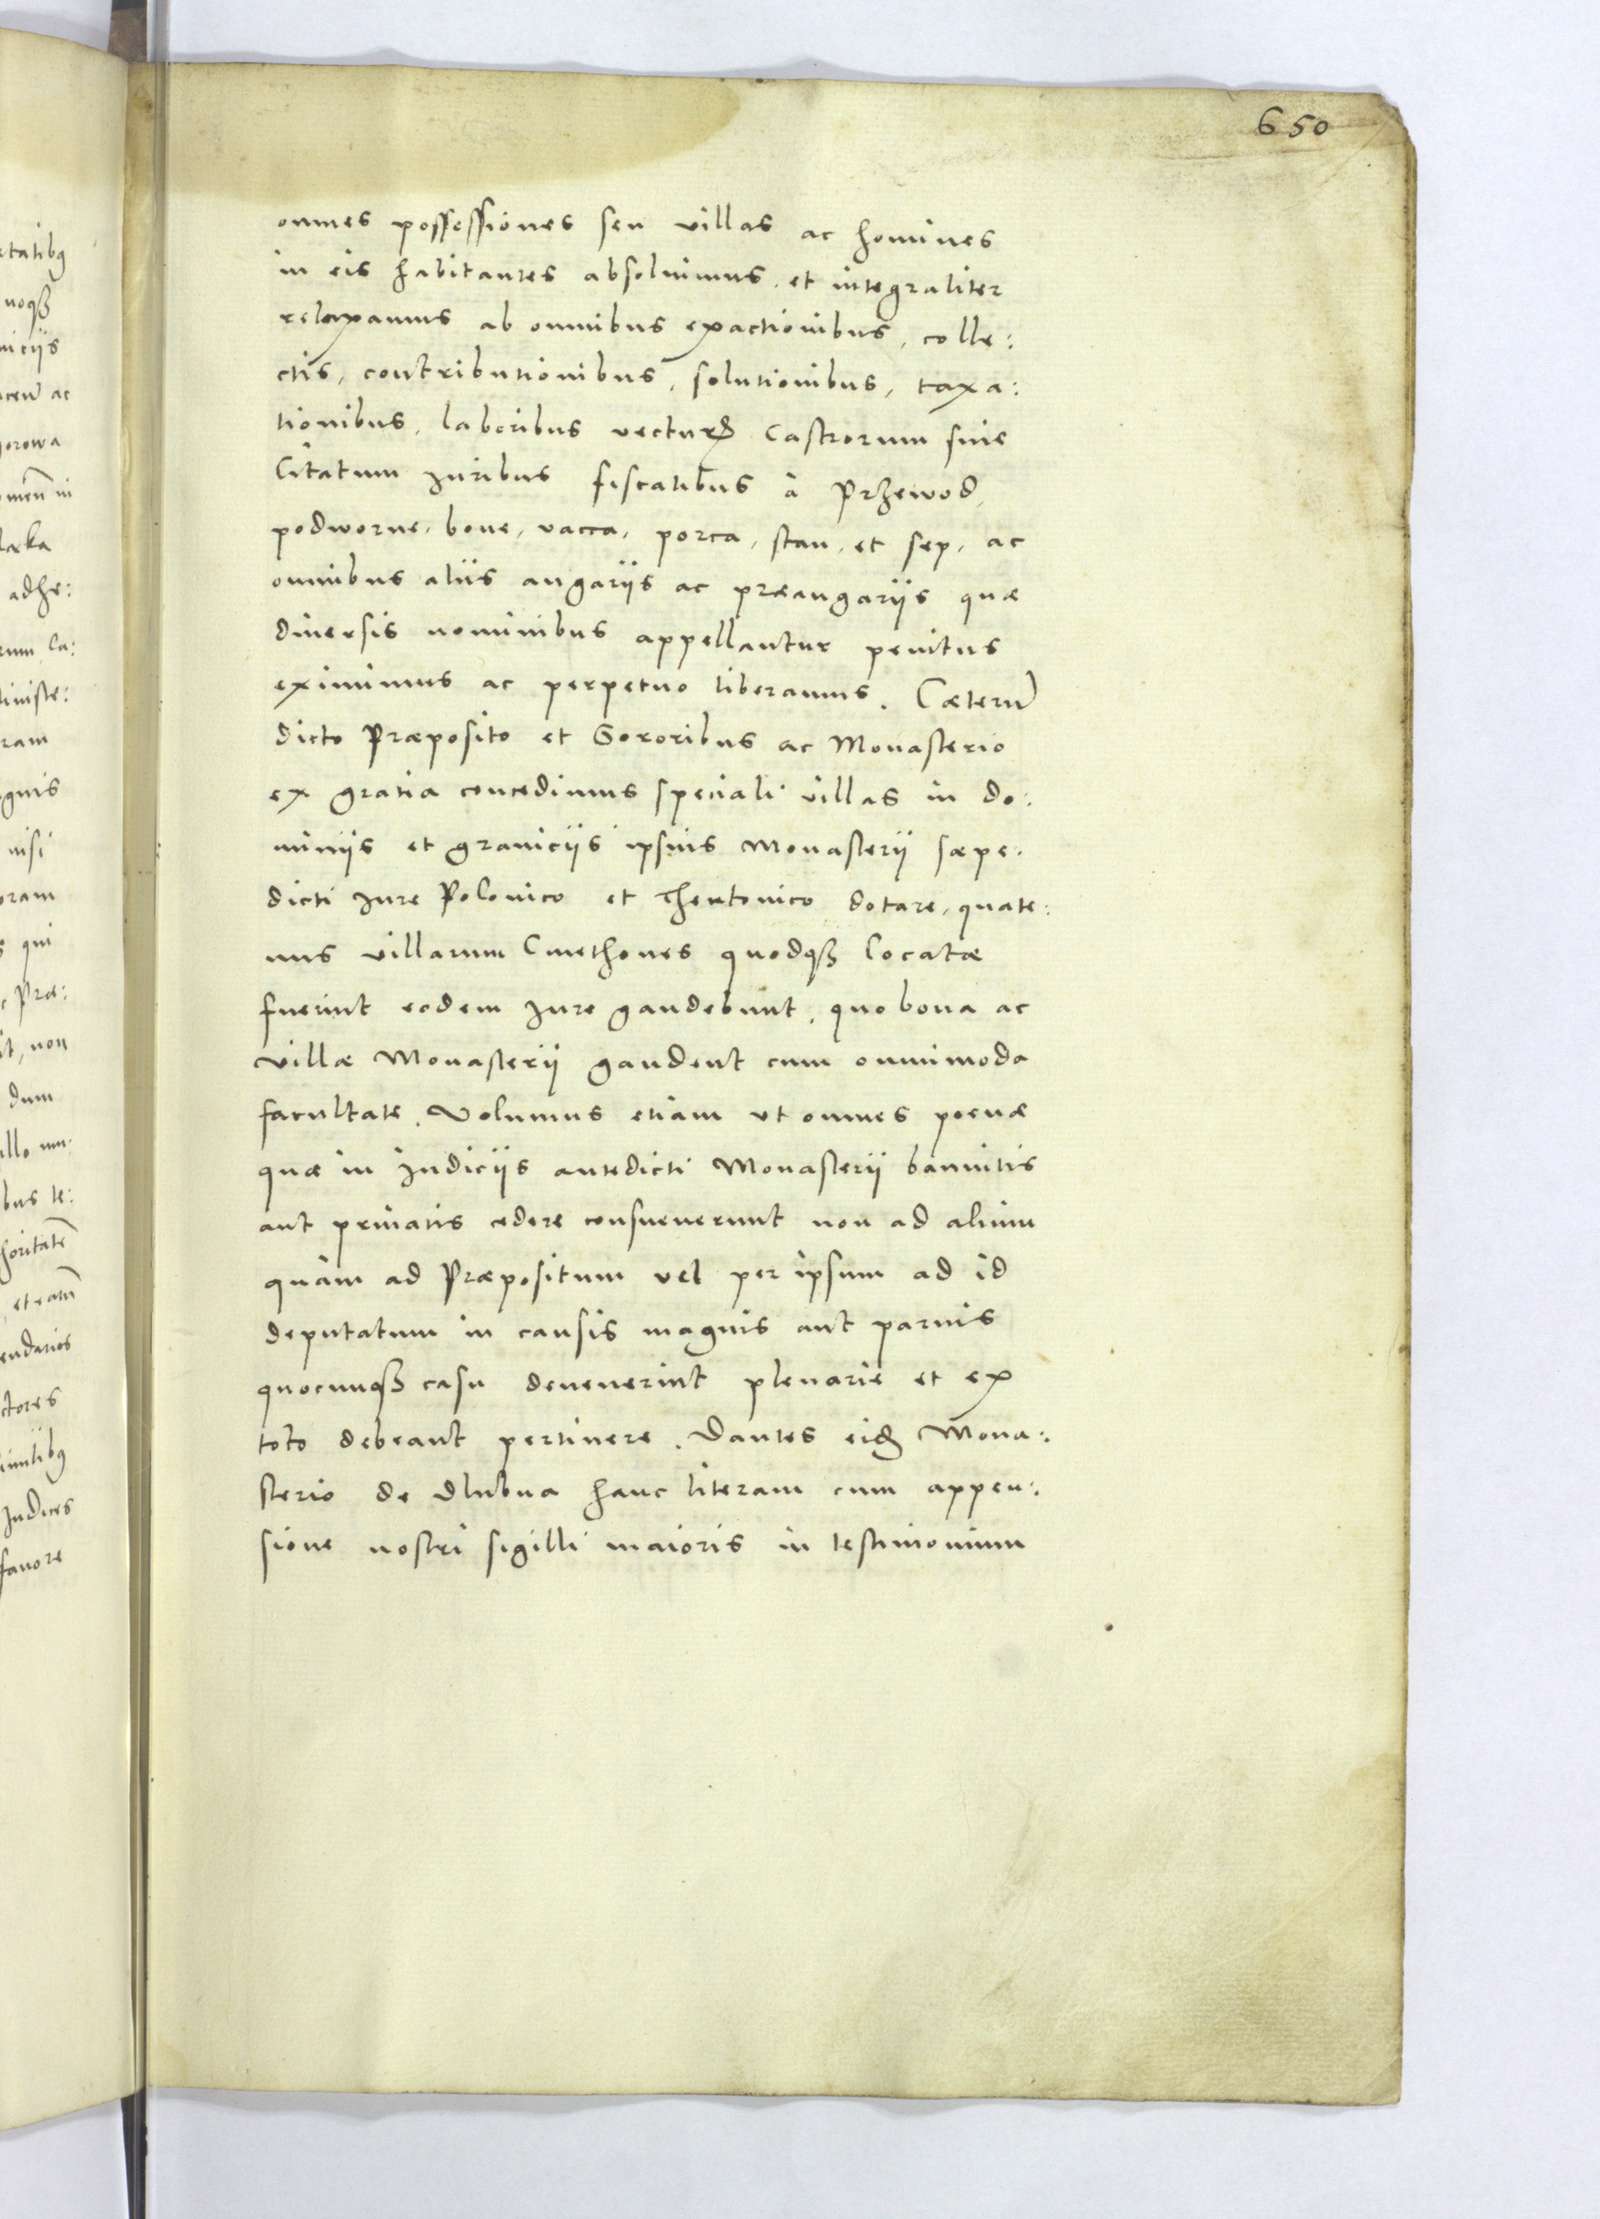 650
omnes possessiones seu villas ac homines
in eis habitantes absoluimus et integraliter
relaxamus ab omnibus exactionibus, colle:
ctis, contributionibus, solutionibus, taxa:
tionibus, laboribus vecturꝝ Castrorum siue
Ciuitatum Juribus fiscalibus à Przewod,
podworne, boue, vacca, porca, stan, et sep, ac
omnibus aliis angariis ac præangariis quæ
diuersis nominibus appellantur penitus
eximimus ac perpetuo liberamus. Cæterũ
dicto Præposito et Sororibus ac Monasterio
ex gratia concedimus speciali villas in do:
miniis et graniciis ipsius Monasterii sæpe.
dicti Jure Polonico et Theutonico dotare, quate:
nus villarum Cmethones quodqꝫ locatæ
fuerint eodem Jure gaudebunt, quo bona ac
villæ Monasterii gaudent cum omnimoda
facultate. Volumus etiam vt omnes poenæ
quæ in Judiciis antedicti Monasterii bannitis
aut priuatis cedere consueuerunt non ad alium
quàm ad Præpositum vel per ipsum ad id
deputatum in causis magnis aut paruis
quocunqꝫ casu deuenerint plenarie et ex
toto debeant pertinere. Dantes eidẽ Mona:
sterio de Dlubna hanc literam cum appen:
sione nostri sigilli maioris in testimonium